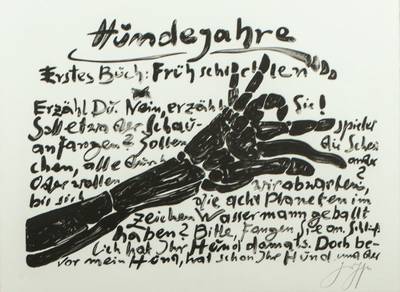 Hundejahre
Erstes Buch: Frühschichten
Erzähl Du. Nein, erzähl Sie!
Soll etwa der Schau- spieler
anfangen? Sollen die Scheu
chen, alle durch ander?
Oder wollen wir abwarten,
bis sich die acht Planeten im
Zeichen Wassermann geballt
haben? Bitte, fangen Sie an. Schließ
lich hat Ihr Hund damals. Doch be-
vor mein Hund, hat schon Ihr Hund und der